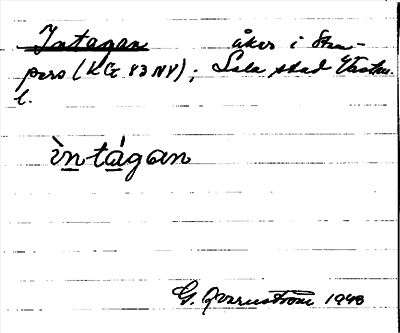 Intagan åker i Stam-
pers (KG 83 NV); Sala stad Västm.
l.
ìntágan
G. Qvarnström 1948